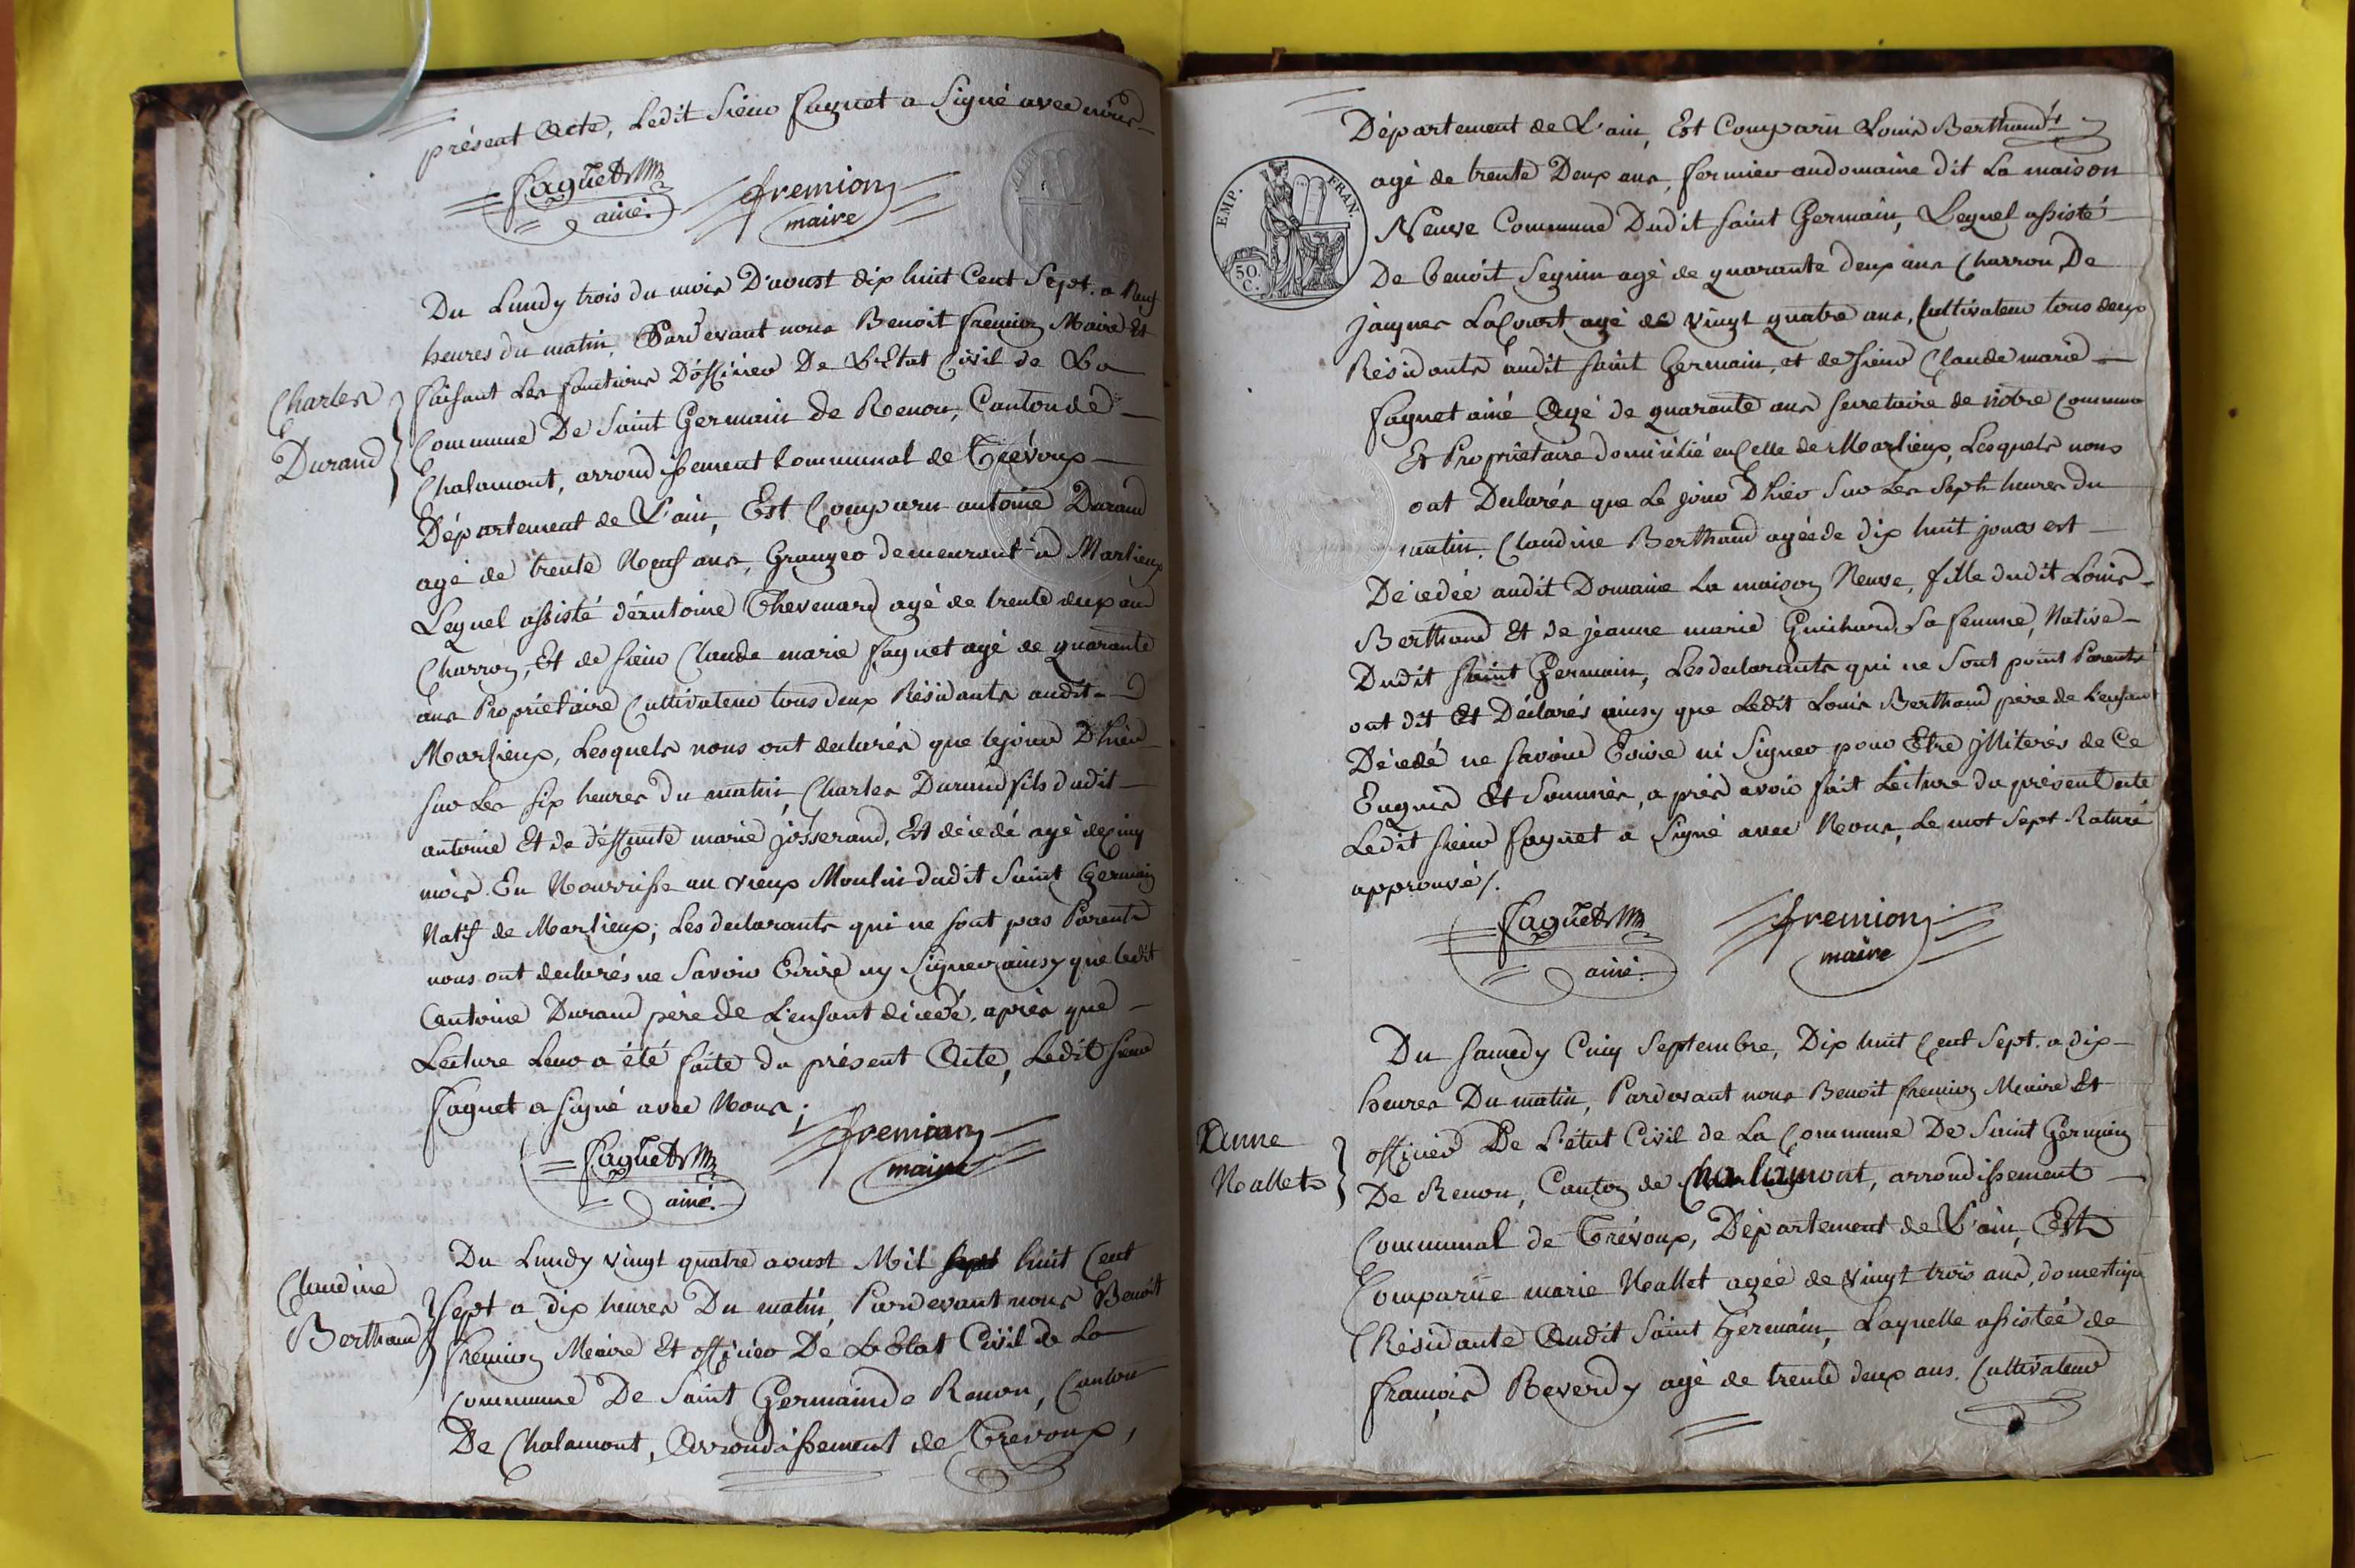 présent Acte, Ledit Sieur Faguet a Signé avec nous
Faguet
ainé.
fremion
maire
Du Lundy trois du mois D'aoust dix huit Cent Sept. a Neuf
heures du matin, Pardevant nous Benoit fremion Maire Et
Charles
Durand
faisant Les fonctions D'officier De L'Etat Civil de La
Commune De Saint Germain de Renon, Canton de
Chalamont, arrondissement Communal de Trévoux
Département de L'ain, Est Comparu antoine Durand
agé de trente Neuf ans, Granger demeurant a Marlieux
Lequel assisté d'antoine Thevenard agé de trente deux ans
Charron, Et de sieur Claude marie faguet agé de quarante
ans Propriétaire Cultivateur tous deux Résidants audit
Marlieux, Lesquels nous ont declarés que lejour D'hier
sur Les six heures du matin, Charles Durand fils dudit
antoine Et de déffunte marie josserand, Est décedé agé decinq
mois. En Nourrisse au vieux Moulin dudit Saint Germain
Natif de Marlieux; Les declarants qui ne sont pas Parents
nous ont declarés ne Savoir Ecrire ny Signer ainsy que ledit
antoine Durand père de L'enfant décedé, après que
Lecture Leur a été faite du présent Acte, Ledit sieur
faguet a signé avec Nous;
Faguet
ainé.
fremion
maire
Claudine
Berthaud
Du Lundy vingt quatre aoust Mil sept huit Cent
Sept a dix heures Du matin, Pardevant nous Benoit
fremion Maire Et officier De L'Etat Civil de La
Commune De Saint Germain de Renon, Canton
De Chalamont, Arrondissement de Trevoux,
Département de L'ain, Est Comparu Louis Berthaud
EMP. FRAN.
50.
C.
agé de trente Deux ans, fermier audomaine dit La maison
Neuve Commune Dudit saint Germain, Lequel assisté
De benoit Seguin agé de quarante deux ans Charron, De
jaques Lacourt agé de vingt quatre ans, Cultivateur tous deux
Résidants audit saint Germain, et de sieur Claude marie
faguet ainé Agé de quarante ans secretaire de nôtre Commune
Et Propriétaire domicilié enCelle de Marlieux, Lesquels nous
ont Declarés que Le jour D'hier Sur Les Sept heures du
matin, Claudine Berthaud agée de dix huit jours est
Décedée audit Domaine La maison Neuve, fille dudit Louis
Berthaud Et de jeanne marie Guichard Sa femme, Native
Dudit Saint Germain, Les declarants qui ne Sont point Parents
ont dit Et Déclarés ainsy que Ledit Louis Berthaud père de L'enfant
Décedé ne savoir Ecrire ni Signer pour Etre illiterés de Ce
Enquis Et Sommés, a près avoir fait Lecture du présent acte
Ledit sieur faguet a Signé avec Nous, Le mot Sept Raturé
approuvé/.
Faguet
ainé.
fremion
maire
Anne
Nallet
Du samedy Cinq Septembre, Dix huit Cent Sept. a dix
heures Du matin, Pardevant nous Benoit fremion Maire Et
officier De L'état Civil de La Commune De Saint Germain
De Renon, Canton de Chalamont, arrondissement
Communal de Trévoux, Département de L'ain, Est
Comparüe marie Nallet agée de vingt trois ans, domestique
Résidante Audit Saint Germain, Laquelle assistée de
françois Reverdy agé de trente deux ans. Cultivateur